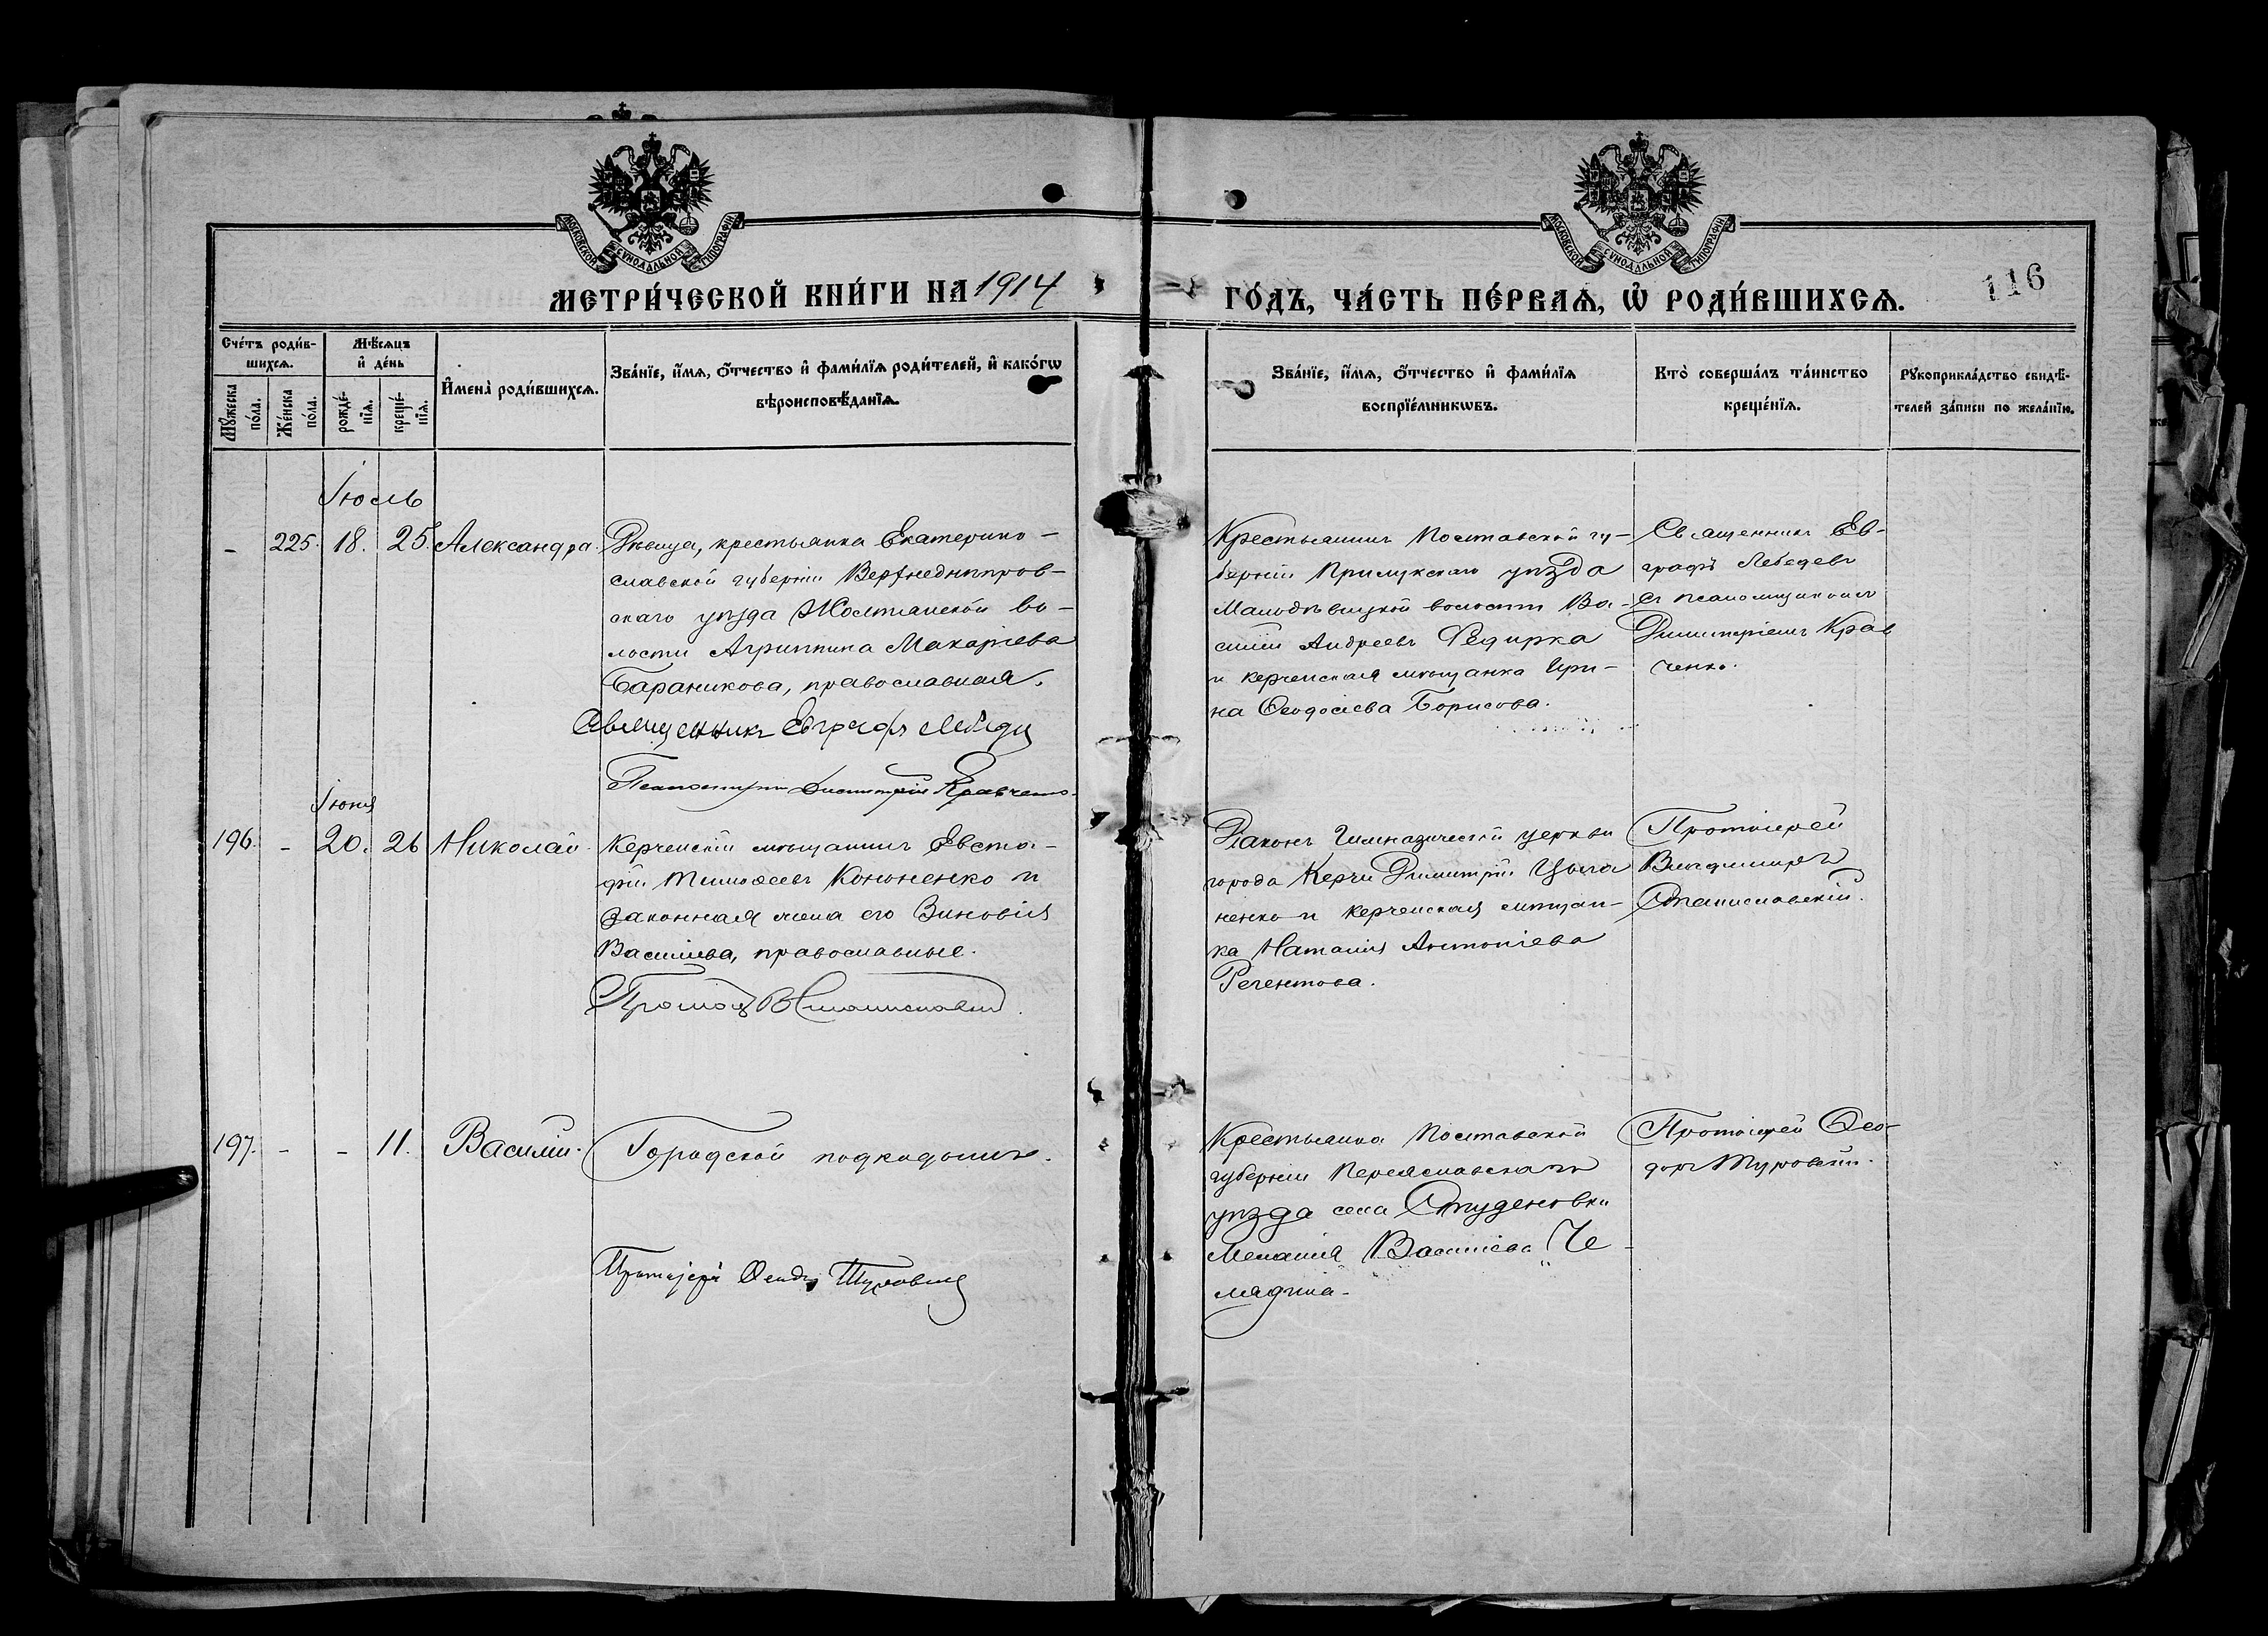 МОСКОВСКОЙ СѴНОДАЛЬНОЙ ТИПОГРАФІИ
МОСКОВСКОЙ СѴНОДАЛЬНОЙ ТИПОГРАФІИ
МЕТРИ́ЧЕСКОЙ КНИ́ГИ НА 1914
ГО́ДЪ, ЧА́СТЬ ПЕ́РВАѦ, Ѡ҆ РОДИ́ВШИХСѦ.
116
Сче́тъ роди́в-
шихсѧ.
Мѣ́сѧцъ
и҆ де́нь
Мꙋ́жеска по́ла.
Же́нска по́ла.
рожде́-
нїѧ.
креще́-
нїѧ.
И҆мена̀ роди́вшихсѧ.
Зва́нїе, и҆́мѧ, ѻ҆́тчество и҆ фами́лїѧ роди́телей, и҆ како́гѡ
вѣроисповѣ́данїѧ.
Зва́нїе, и҆́мѧ, ѻ҆́тчество и҆ фами́лїѧ
воспрїе́мникѡвъ.
Кто̀ соверша́лъ та́инство
креще́нїѧ.
Рꙋкоприкла́дство свидѣ́-
телей за́писи по жела́нїю.
Іюль
- 225. 18. 25. Александра.
Дѣвица, крестьянка Екатерино-
славской губерніи Верхнеднѣпров-
скаго уѣзда Жолтянской во-
лости Агриппина Макаріева
Бараникова, православная.
Священникъ Евграфъ Лебедев
Псаломщикъ Димитрій Кравченко.
Крестьянинъ Полтавской гу-
берніи Прилукскаго уѣзда
Малодѣвицкой волости Ва-
силій Андреевъ Федирка
и керченская мѣщанка Ири-
на Ѳеодосіева Борисова.
Священникъ Ев-
графъ Лебедевъ
съ псаломщикомъ
Димитріемъ Крав
ченко.
Іюня
196. - 20. 26 Николай.
Керченскій мѣщанинъ Евста-
фій Тимоѳеевъ Кононенко и
законная жена его Зиновія
Василіева, православные.
Протоіер В Станиславскій.
Діаконъ Гимназической церкви
города Керчи Димитрій Цыга
ненко и керченская мѣщан-
ка Наталія Антоніева
Регентова.
Протоіерей
Владимиръ
Станиславскій.
197. - - 11. Василій.
Городской подкидышъ.
Протоіерей Ѳеодор Туровскій
Крестьянка Полтавской
губерніи Переяславскаго
уѣзда села Студеновки
Меланія Василіева Че-
лядина.
Протоіерей Ѳео-
доръ Туровскій.